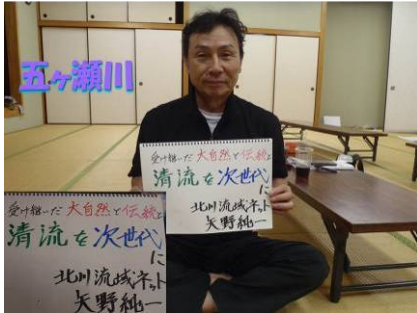 五ヶ瀬川
受け継いだ大自然と伝統と
清流を次世代
に
北川流域ネット
矢野純一
受け継いだ大自然と伝統と
清流を次世代
に
北川流域ネット
矢野純一